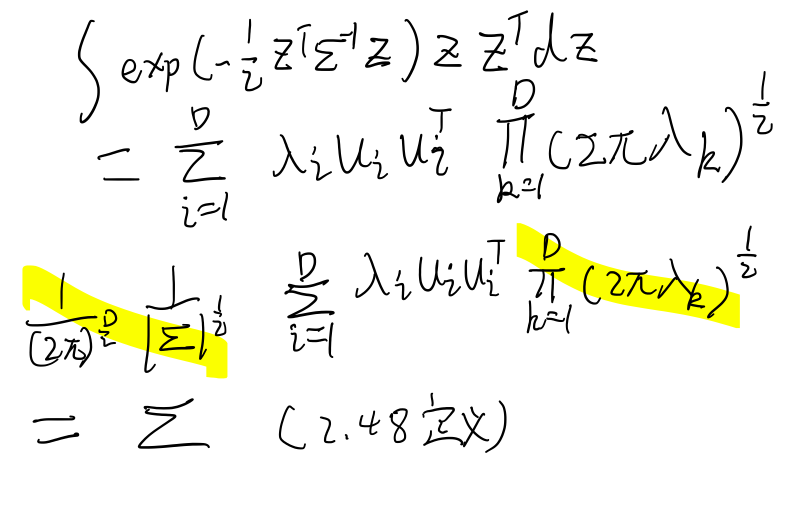 ∫ exp(-1/2 z^T Σ^-1 z) z z^T dz
= Σ_{i=1}^{D} λ_i u_i u_i^T Π_{k=1}^{D} (2πλ_k)^{1/2}
1/(2π)^{D/2} 1/|Σ|^{1/2} Σ_{i=1}^{D} λ_i u_i u_i^T Π_{k=1}^{D} (2πλ_k)^{1/2}
= Σ (2.48 定义)